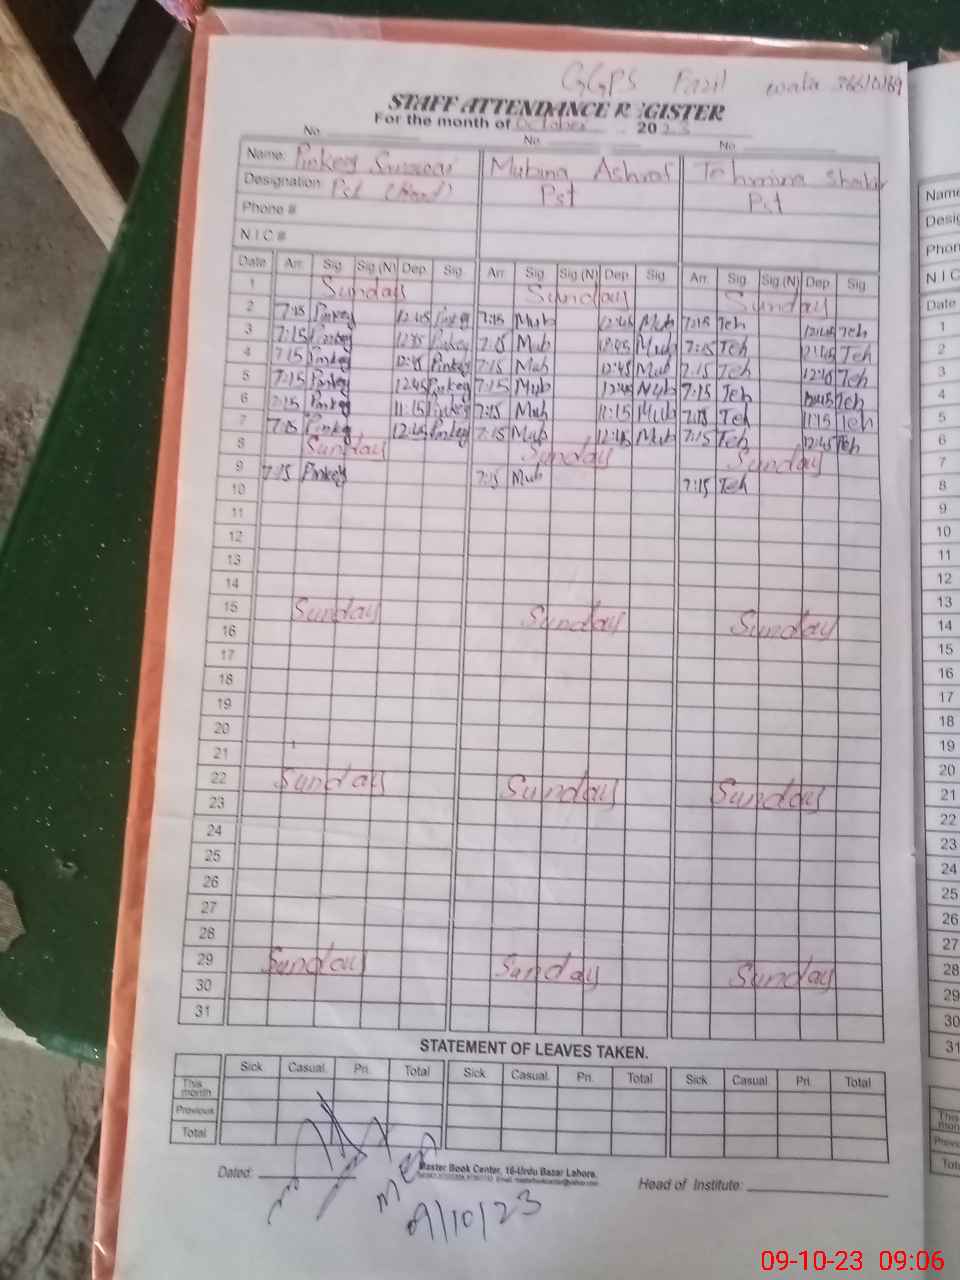 GGPS Fazil wala 366/G/69
STAFF ATTENDANCE REGISTER
For the month of October 2023
No. No. No.
Name: Pinkey Mubina Ashraf Tehmina
Designation: Pst (Head) Pst Pst
Phone #
N I C #
Date Arr. Sig. Sig.(N) Dep. Sig. Arr. Sig. Sig.(N) Dep. Sig. Arr. Sig. Sig.(N) Dep. Sig.
1 Sunday Sunday Sunday
2 7:15 Pinkey 12:45 Pinkey 7:15 Mub 12:45 Mub 7:15 Teh 12:45 Teh
3 7:15 Pinkey 12:45 Pinkey 7:15 Mub 12:45 Mub 7:15 Teh 12:45 Teh
4 7:15 Pinkey 12:45 Pinkey 7:15 Mub 12:45 Mub 7:15 Teh 12:45 Teh
5 7:15 Pinkey 12:45 Pinkey 7:15 Mub 12:45 Mub 7:15 Teh 12:45 Teh
6 7:15 Pinkey 11:15 Pinkey 7:15 Mub 11:15 Mub 7:15 Teh 11:15 Teh
7 7:15 Pinkey 12:45 Pinkey 7:15 Mub 12:45 Mub 7:15 Teh 12:45 Teh
8 Sunday Sunday Sunday
9 7:15 Pinkey 7:15 Mub 7:15 Teh
10
11
12
13
14
15 Sunday Sunday Sunday
16
17
18
19
20
21
22 Sunday Sunday Sunday
23
24
25
26
27
28
29 Sunday Sunday Sunday
30
31
STATEMENT OF LEAVES TAKEN.
Sick Casual. Pri. Total Sick. Casual. Pri. Total Sick. Casual Pri. Total
This month
Previous
Total
Dated:
Master Book Center, 16-Urdu Bazar Lahore.
Head of Institute:
9/10/23
Name
Phon
N I C
Date
1
2
3
4
5
6
7
8
9
10
11
12
13
14
15
16
17
18
19
20
21
22
23
24
25
26
27
28
29
30
31
09-10-23 09:06